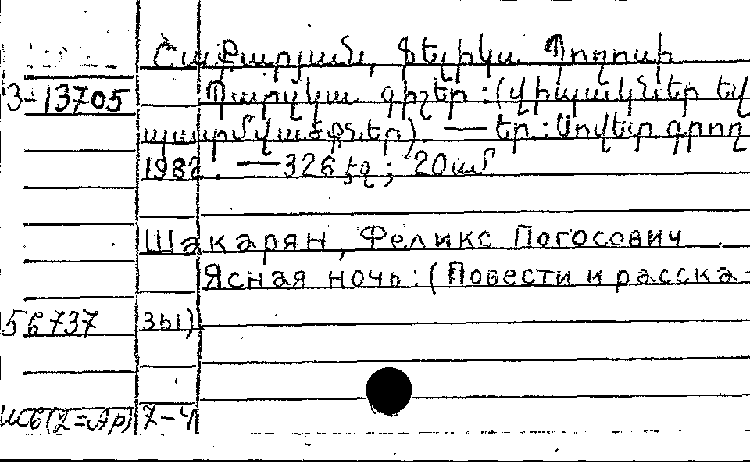 Շաքարյան, Ֆելիկս Պողոսի
З-13705 Պարզկա գիշեր : (Վիպակներ եվ
պատմվածքներ). — Եր : Սովետ. գրող
1982. — 326 էջ ; 20սմ
Шакарян, Феликс Погосович
Ясная ночь : (Повести и расска-
56737 зы)
7-4